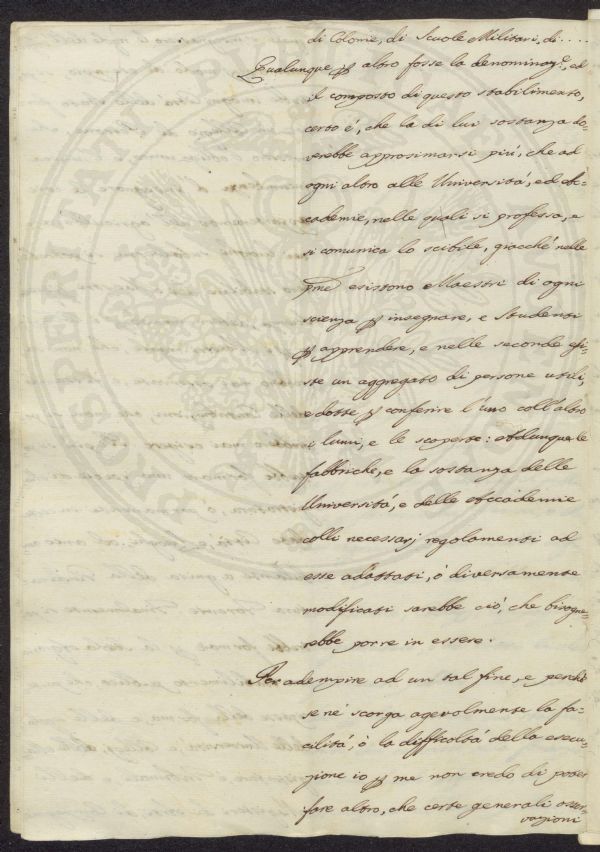 di Colonie, di Scuole Militari, di....
Qualunque p altro fosse la denominaz.e, ed
il composto di questo stabilimento,
certo é, che la di lui sostanza do-
verebbe approsimarsi piú, che ad
ogni altro alle Universitá, ed Ac-
cademie, nelle quali si professa, e
si comunica lo scibile, giacché nelle
pme esistono Maestri di ogni
scienza p insegnare, e Studenti
p apprendere, e nelle seconde esi-
ste un aggregato di persone utili,
e dotte p conferire l'uno coll'altro
i lumi, e le scoperte: Adunque le
fabbriche, e la sostanza delle
Universitá, e delle Accademie
colli necessarj regolamenti ad
esse adattati, ó diversamente
modificati sarebbe ció, che bisogne-
rebbe porre in essere.
Per adempire ad un tal fine, e perché
se né scorga agevolmente la fa-
cilitá, ó la difficoltá della esecu-
zione io p me non credo di poter
fare altro, che certe generali osser-
vazioni